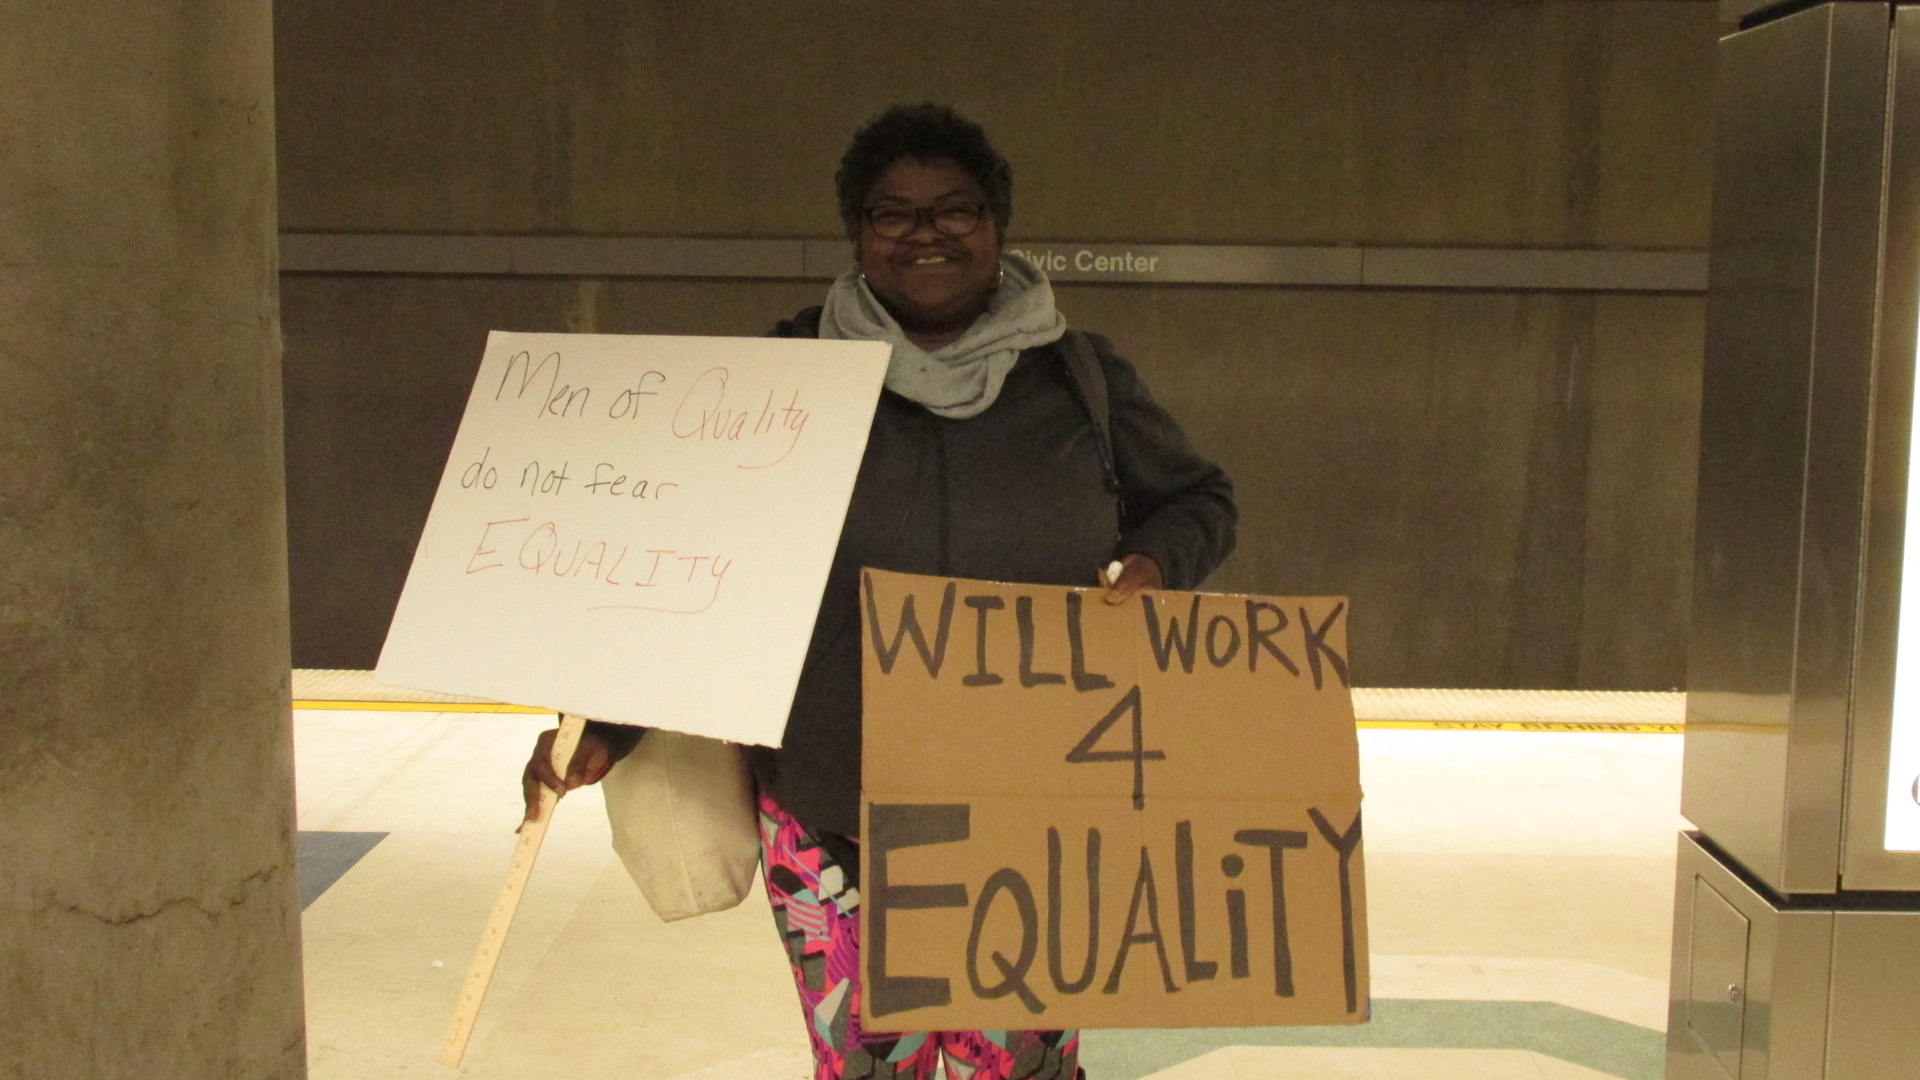 Civic Center
Men of Quality
do not fear
EQUALITY
WILL WORK
4
EQUALiTY
STAY BEHIND